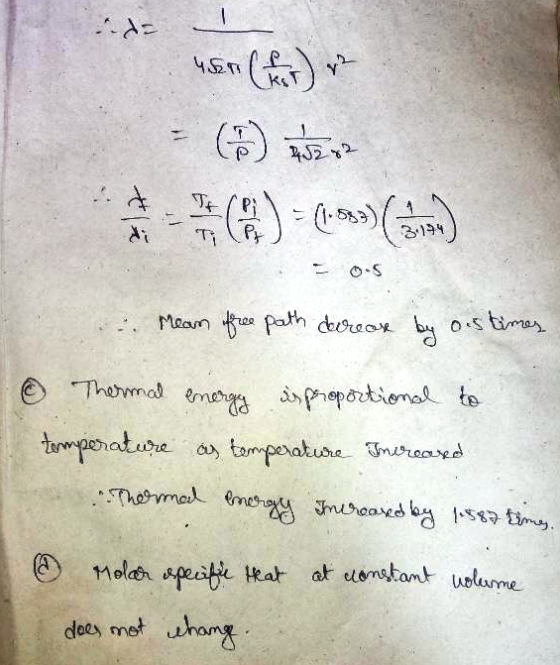 ∴ λ = 1 / (4√2π (P/K_bT) r²)
= (T/P) 1/(4√2 r²)
∴ λf/λi = Tf/Ti (Pi/Pf) = (1.587)(1/3.174)
= 0.5
∴ Mean free path decrease by 0.5 times
(c) Thermal energy is proportional to
temperature as temperature Increased
∴ Thermal energy Increased by 1.587 times.
(d) Molar specific Heat at constant volume
does not change.